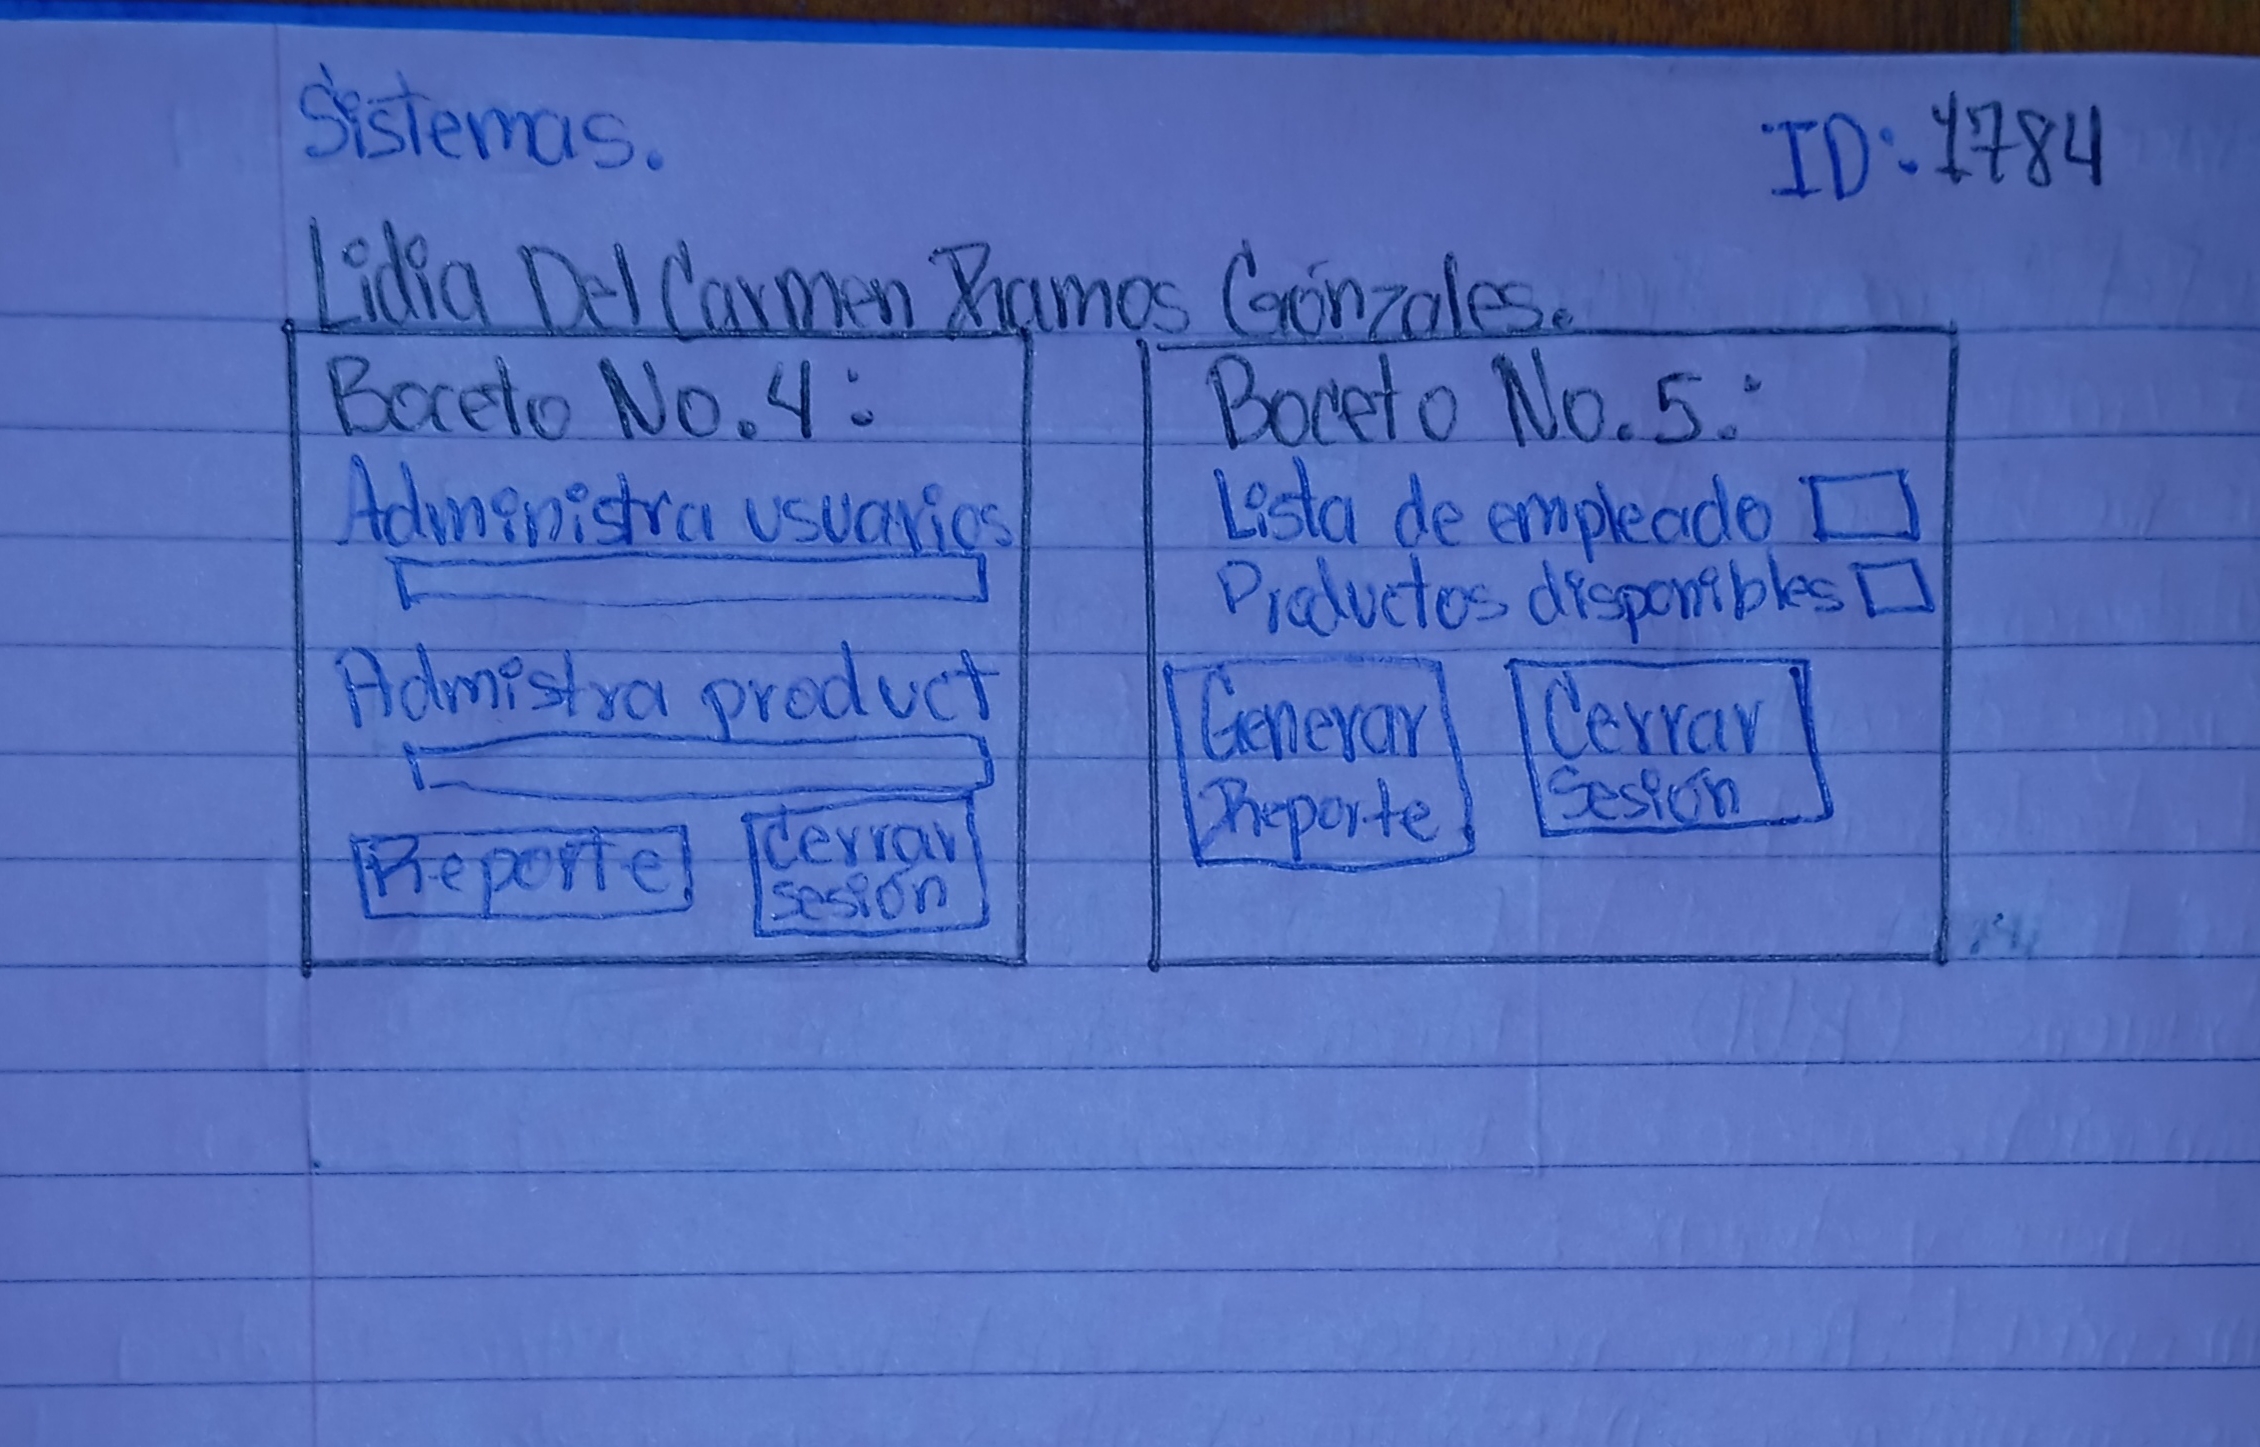 Sistemas.
ID: 1784
Lidia Del Carmen Ramos Gónzales.
Boceto No. 4:
Administra usuarios
Admistra product
Reporte
Cerrar
sesión
Boceto No. 5:
Lista de empleado
Productos disponibles
Generar
Reporte
Cerrar
Sesión